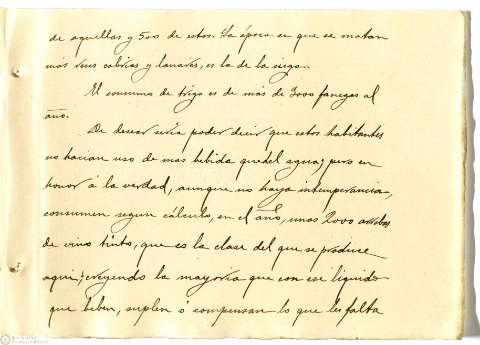 de aquellas y 500 de estos. La época en que se matan
más reses cabrías y lanares, es la de la siega.
El consumo de trigo es de más de 3000 fanegas al
año.
De desear sería poder decir que estos habitantes
no hacían uso de mas bebida que del agua; pero en
honor á la verdad, aunque no haya intemperancia,
consumen segun cálculo, en el año, unas 2000 arrobas
de vino tinto, que es la clase del que se produce
aquí; creyendo la mayoría que con ese líquido
que beben, suplen ó compensan lo que les falta